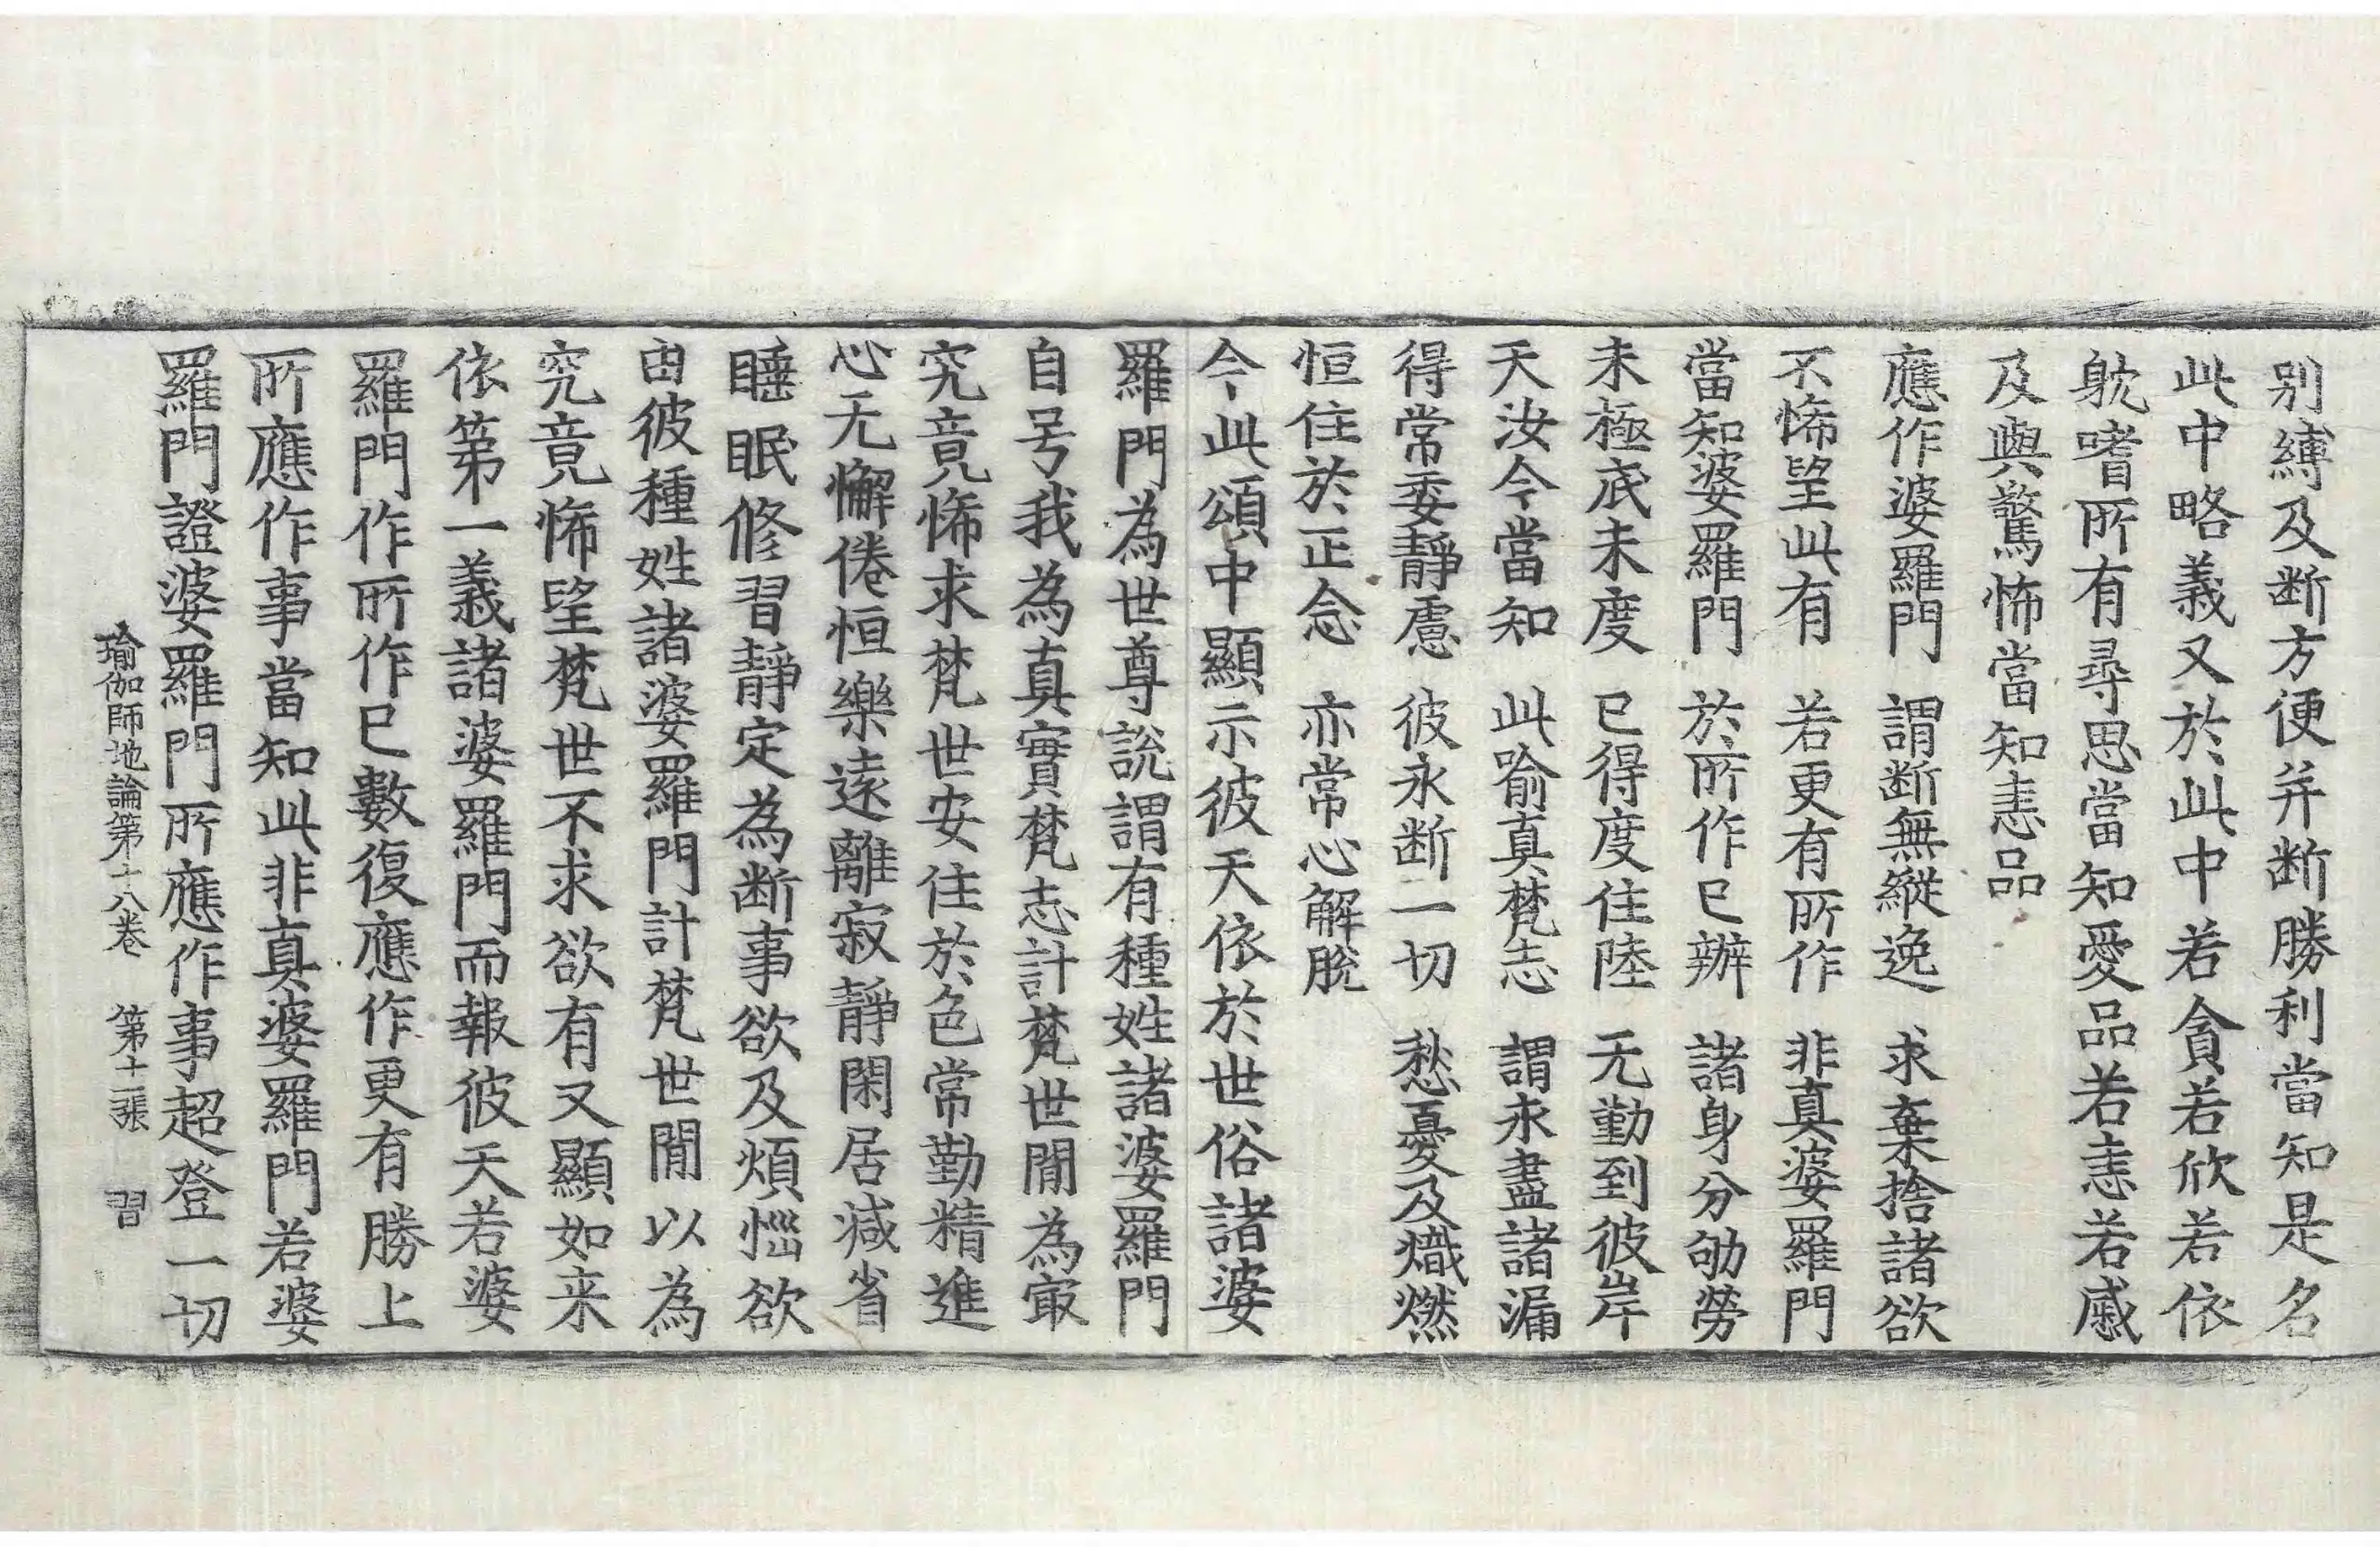 別縛及断方便并断勝利當知是名
此中略義又於此中若貪若欣若依
躭嗜所有尋思當知愛品若恚若慼
及與驚怖當知恚品
應作婆羅門　謂断無縱逸　求棄捨諸欲
不悕望此有　若更有所作　非真婆羅門
當知婆羅門　於所作已辦　諸身分劬勞
未極底未度　已得度住陸　无勤到彼岸
天汝今當知　此喻真梵志　謂永盡諸漏
得常委靜慮　彼永断一切　愁憂及熾燃
恒住於正念　亦常心解脫
今此頌中顯示彼天依於世俗諸婆
羅門為世尊說謂有種姓諸婆羅門
自号我為真實梵志計梵世間為㝡
究竟悕求梵世安住於色常勤精進
心无懈倦恒樂遠離寂靜閑居減省
睡眠修習靜定為断事欲及煩惱欲
由彼種姓諸婆羅門計梵世間以為
究竟悕望梵世不求欲有又顯如来
依第一義諸婆羅門而報彼天若婆
羅門作所作已數復應作更有勝上
所應作事當知此非真婆羅門若婆
羅門證婆羅門所應作事超登一切
瑜伽師地論第十八卷　第十二張　習